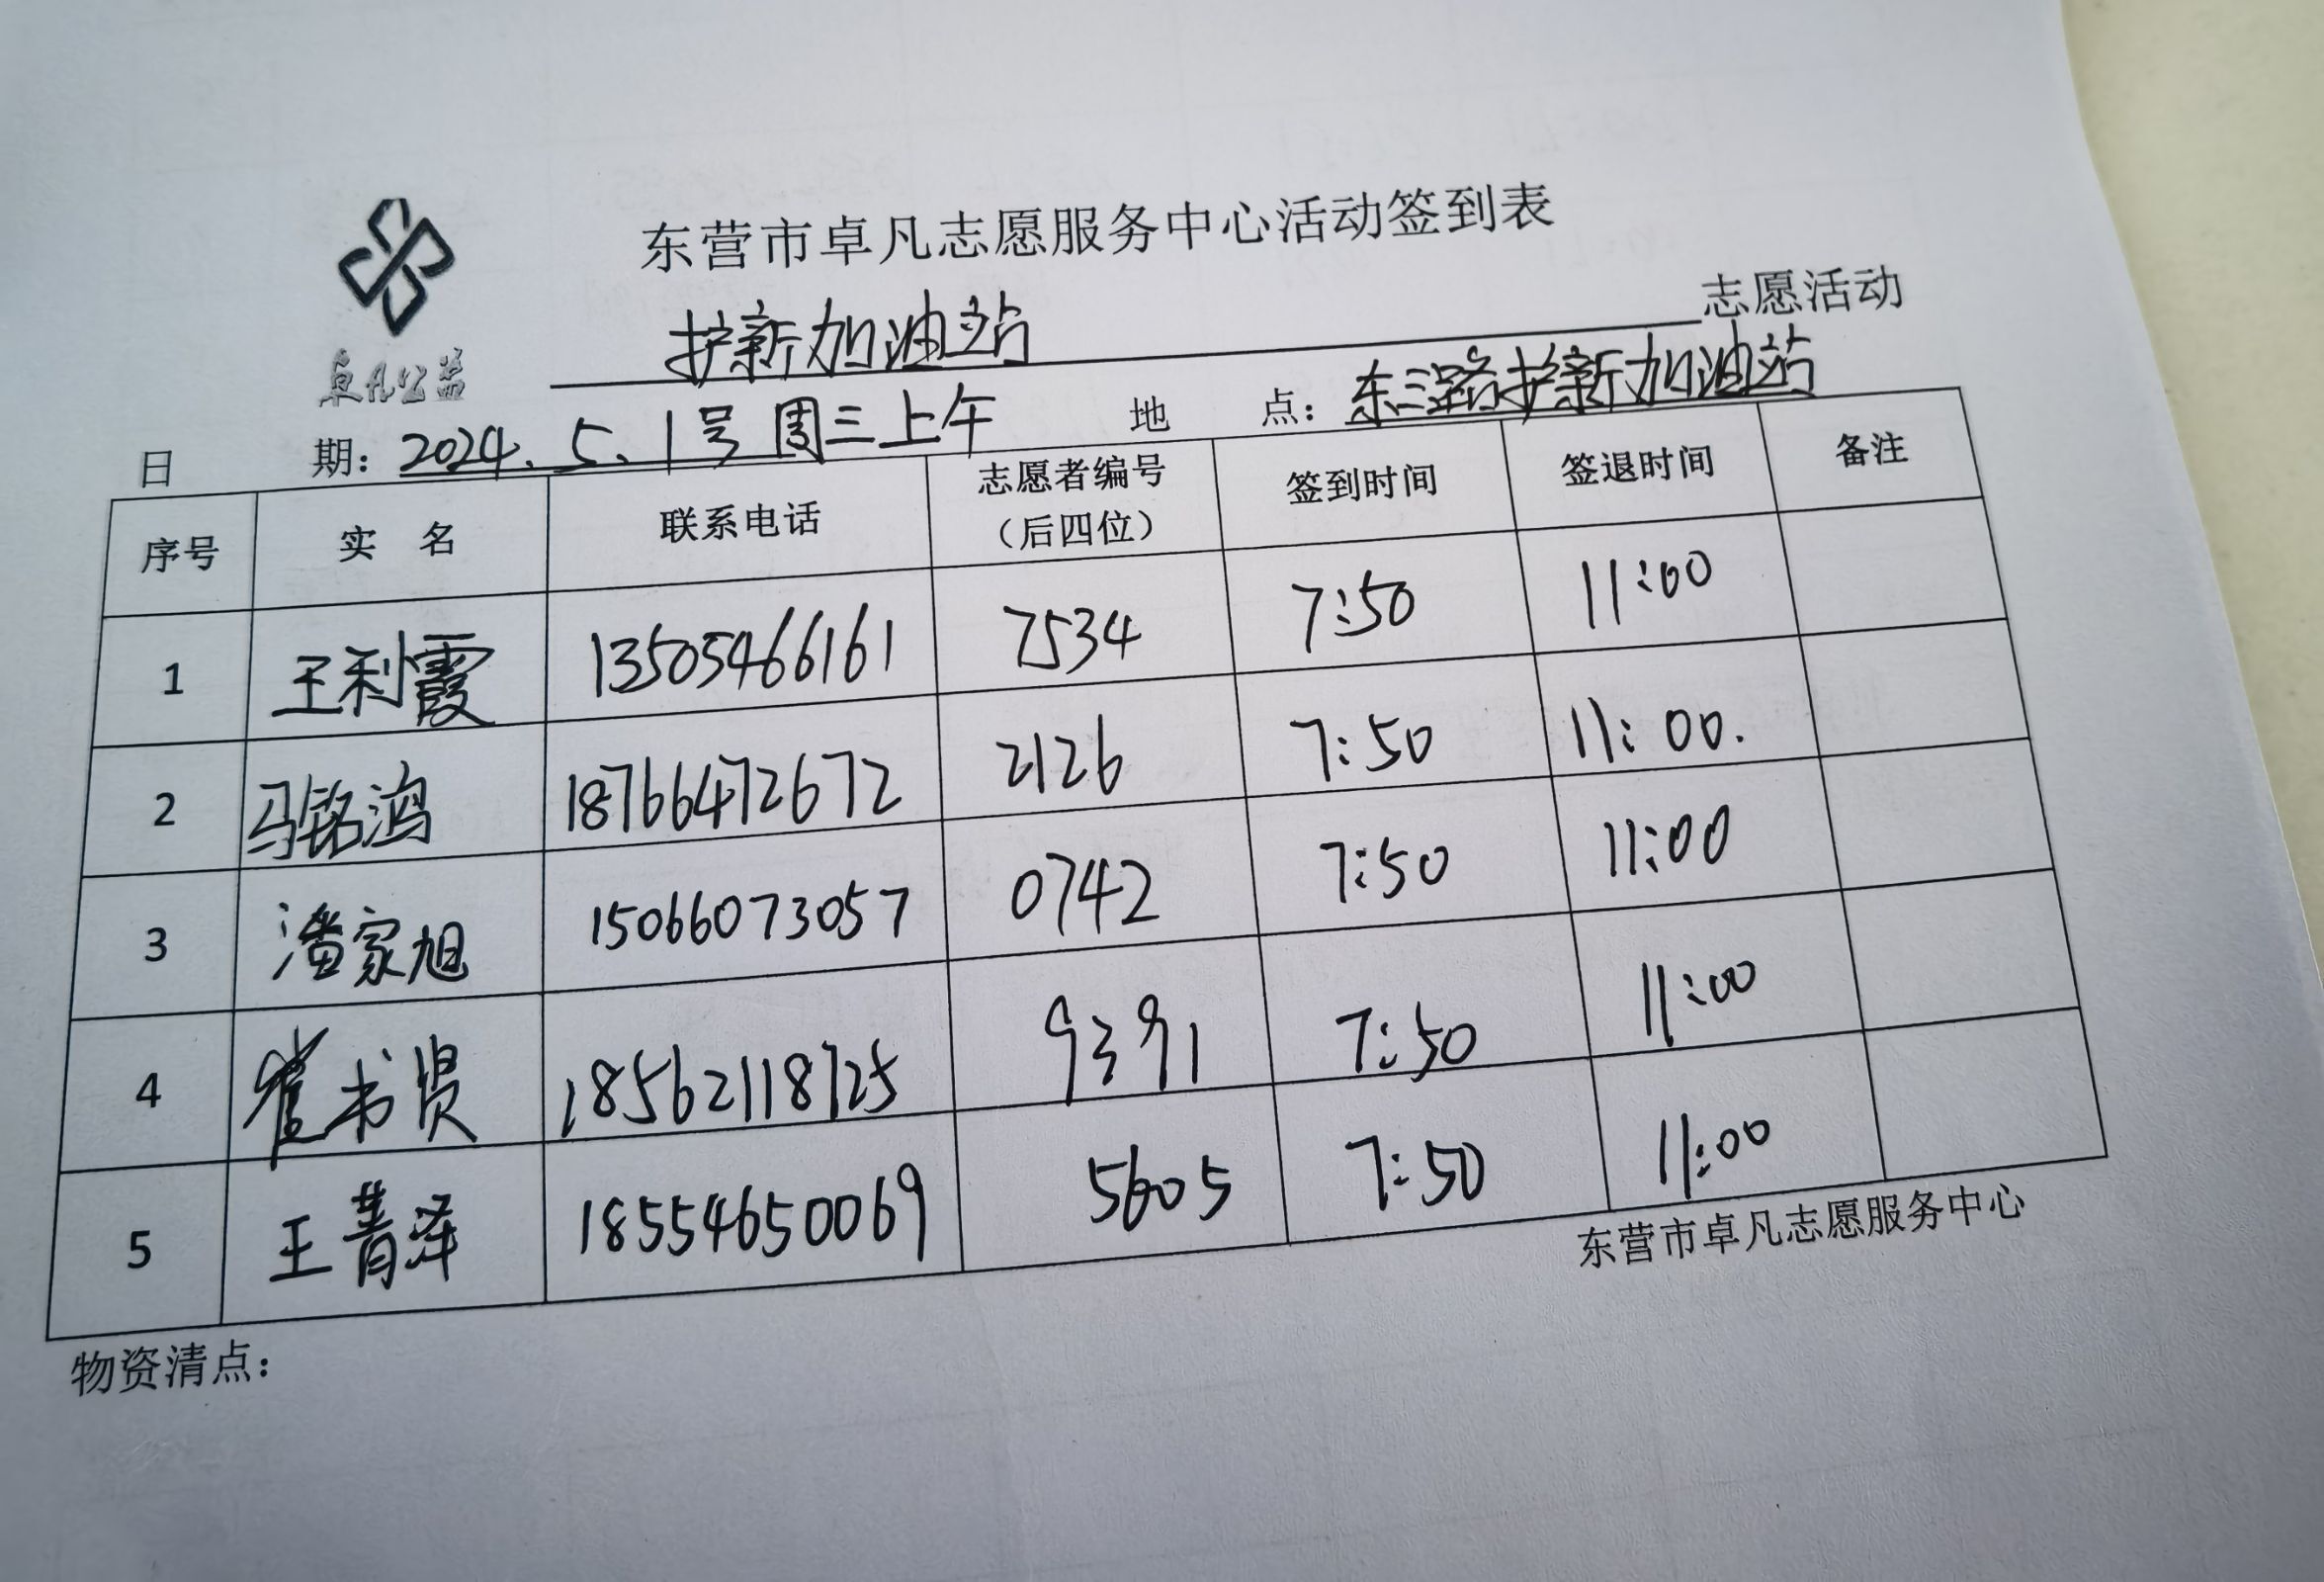 东营市卓凡志愿服务中心活动签到表
卓凡公益
护新加油站 志愿活动
日 期：2024.5.1号周三上午 地 点：东三路护新加油站
序号 实 名 联系电话 志愿者编号（后四位） 签到时间 签退时间 备注
1 王利霞 13505466161 7534 7:50 11:00
2 马铭鸿 18766472672 2126 7:50 11:00.
3 潘家旭 15066073057 0742 7:50 11:00
4 崔书贤 18562118725 9391 7:50 11:00
5 王菁泽 18554650069 5605 7:50 11:00
东营市卓凡志愿服务中心
物资清点：